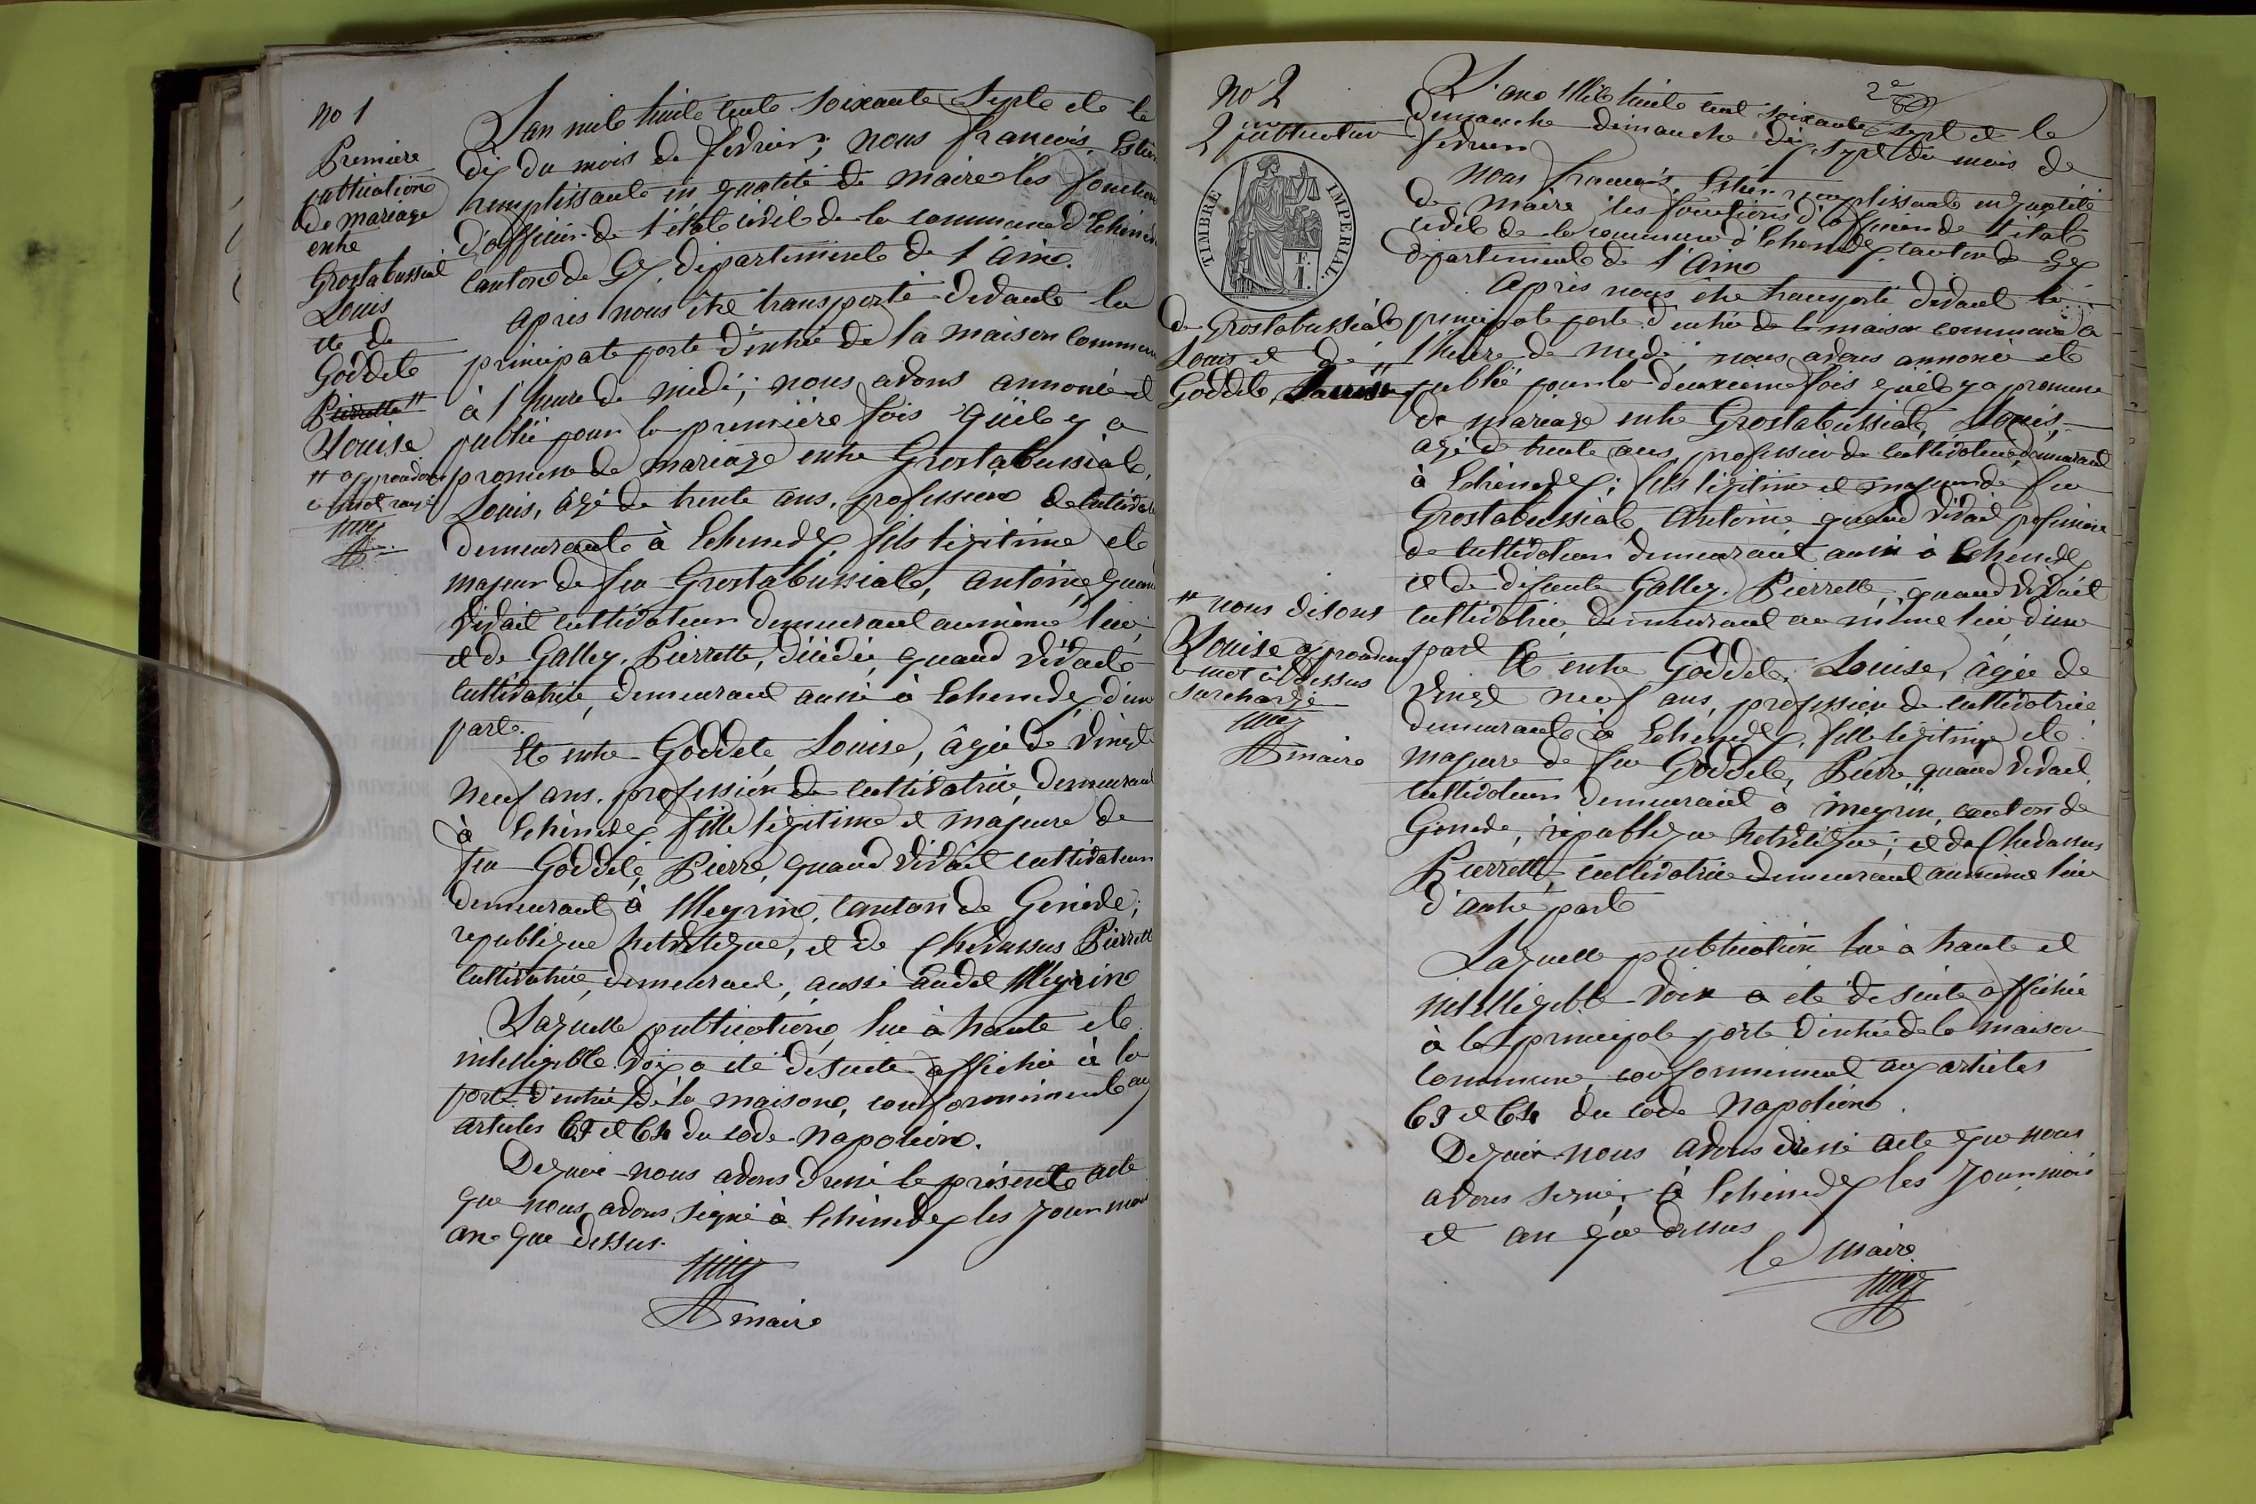 No 1
Première
publication
de mariage
entre
Grostabussiat
Louis
et de
Goddet
Pierrette #
Louise
# approuvons
le mot rayé
L'an mil huit cent soixante sept et le
dix du mois de février; nous françois, Estier
remplissant en qualité de maire les fonctions
d'officier de l'état civil de la commune d'Echenevex
canton de Gex département de l'ain.
après nous être transporté devant la
principale porte d'entrée de la maison commune
à l'heure de midi; nous avons annoncé et
publié pour la première fois qu'il y a
promesse de mariage entre Grostabussiat,
Louis, âgé de trente ans, profession de cultivateur
demeurant à Echenevex, fils légitime et
majeur de feu Grostabussiat, antoine, quand
vivait cultivateur demeurant au même lieu,
et de Galley, Pierrette, décédée, quand vivait
cultivatrice, demeurant aussi à Echenevex d'une
part.
Et entre Goddet, Louise, âgée de vingt
neuf ans, profession de cultivatrice, demeurant
à Echenevex fille légitime et majeure de
feu Goddet, Pierre, quand vivait cultivateur
demeurant à Meyrin, canton de Genève,
republique helvétique, et de Chevassus Pierrette
cultivatrice, demeurant, aussi audit Meyrin
Laquelle publication, lue à haute et
intelligible voix a été de suite affichée à la
porte d'entrée de la maison, conformément aux
articles 63 et 64 du code Napoléon.
De quoi nous avons dressé le présent acte
que nous avons signé à Echenevex les jour mois
an que dessus.
maire
No 2
2 publication
TIMBRE IMPERIAL
1 F.
de Grostabussiat
Louis et de
Goddet Louise #
# nous disons
Louise approuvons
le mot ci dessus
surchargé
maire
2e
L'an Mil huit cent soixante sept et le
dimanche dimanche dix sept du mois de
février
Nous françois, Estier remplissant en qualité
de maire les fonctions d'officier de l'état
civil de la commune d'Echenevex, canton de Gex
département de l'ain
après nous être transporté devant la
principale porte d'entrée de la maison commune a
l'heure de midi, nous avons annoncé et
publié pour la deuxième fois qu'il y a promesse
de mariage entre Grostabussiat, Louis,
agé de trente ans, profession de cultivateur, demeurant
à Echenevex; fils légitime et majeur de feu
Grostabussiat, antoine quand vivait profession
de cultivateur demeurant aussi à Echenevex
et de défunte Galley, Pierrette, quand vivait
cultivatrice, demeurant au même lieu d'une
part
Et entre Goddet, Louise, âgée de
vingt neuf ans, profession de cultivatrice
demeurant à Echenevex, fille légitime et
majeure de feu Goddet, Pierre quand vivait
cultivateur demeurant à Meyrin, canton de
Genève, république helvétique; et de Chevassus
Pierrette, cultivatrice demeurant au même lieu
d'autre part
Laquelle publication lue à haute et
intelligible voix a été de suite affichée
à la principale porte d'entrée de la maison
commune, conformément aux articles
63 et 64 du code Napoléon.
De quoi nous avons dressé acte que nous
avons signé, à Echenevex les jour mois
et an que dessus
le maire